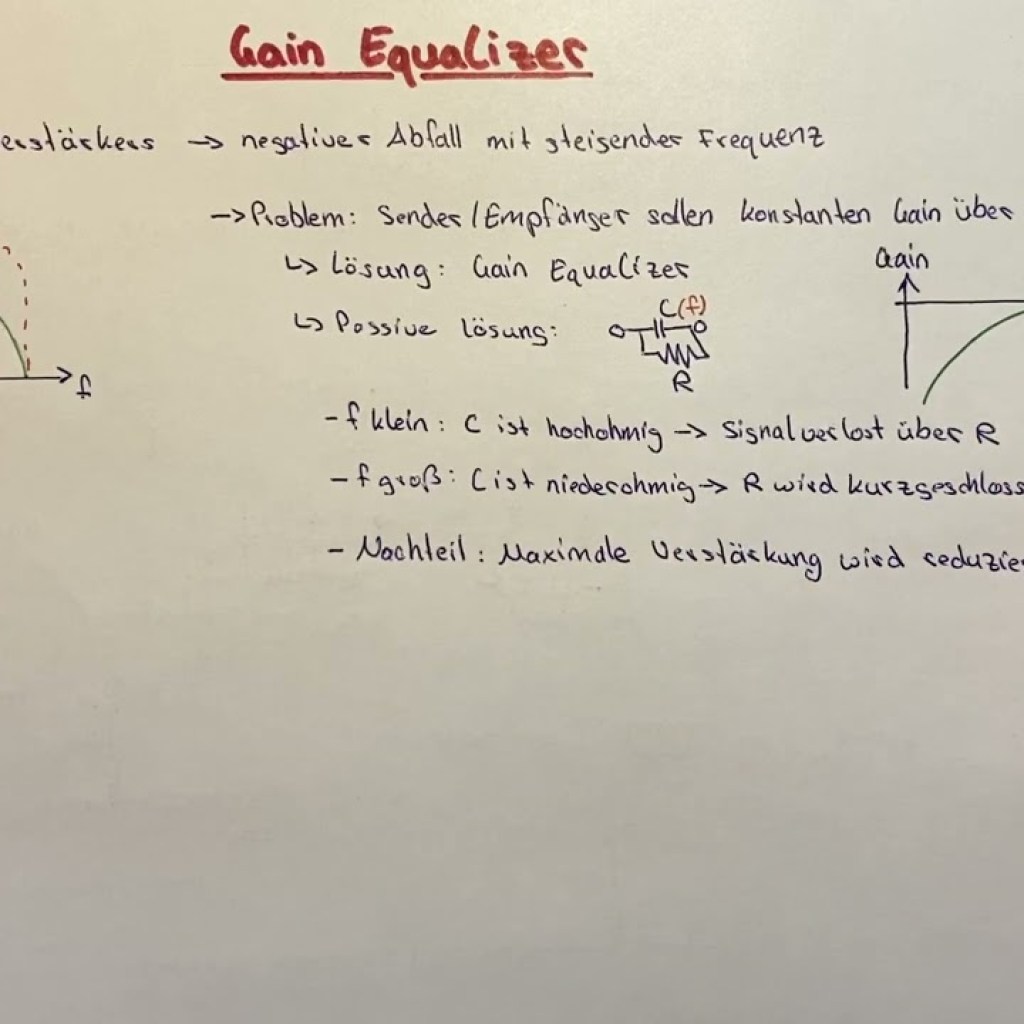 Gain Equalizer
erstärkers → negativer Abfall mit steigender Frequenz
→ Problem: Sender/Empfänger sollen konstanten Gain über
↳ Lösung: Gain Equalizer
Gain
↳ Passive Lösung:
C(f)
R
f
- f klein: C ist hochohmig → Signalverlust über R
- f groß: C ist niederohmig → R wird kurzgeschloss
- Nachteil: Maximale Verstärkung wird reduzier